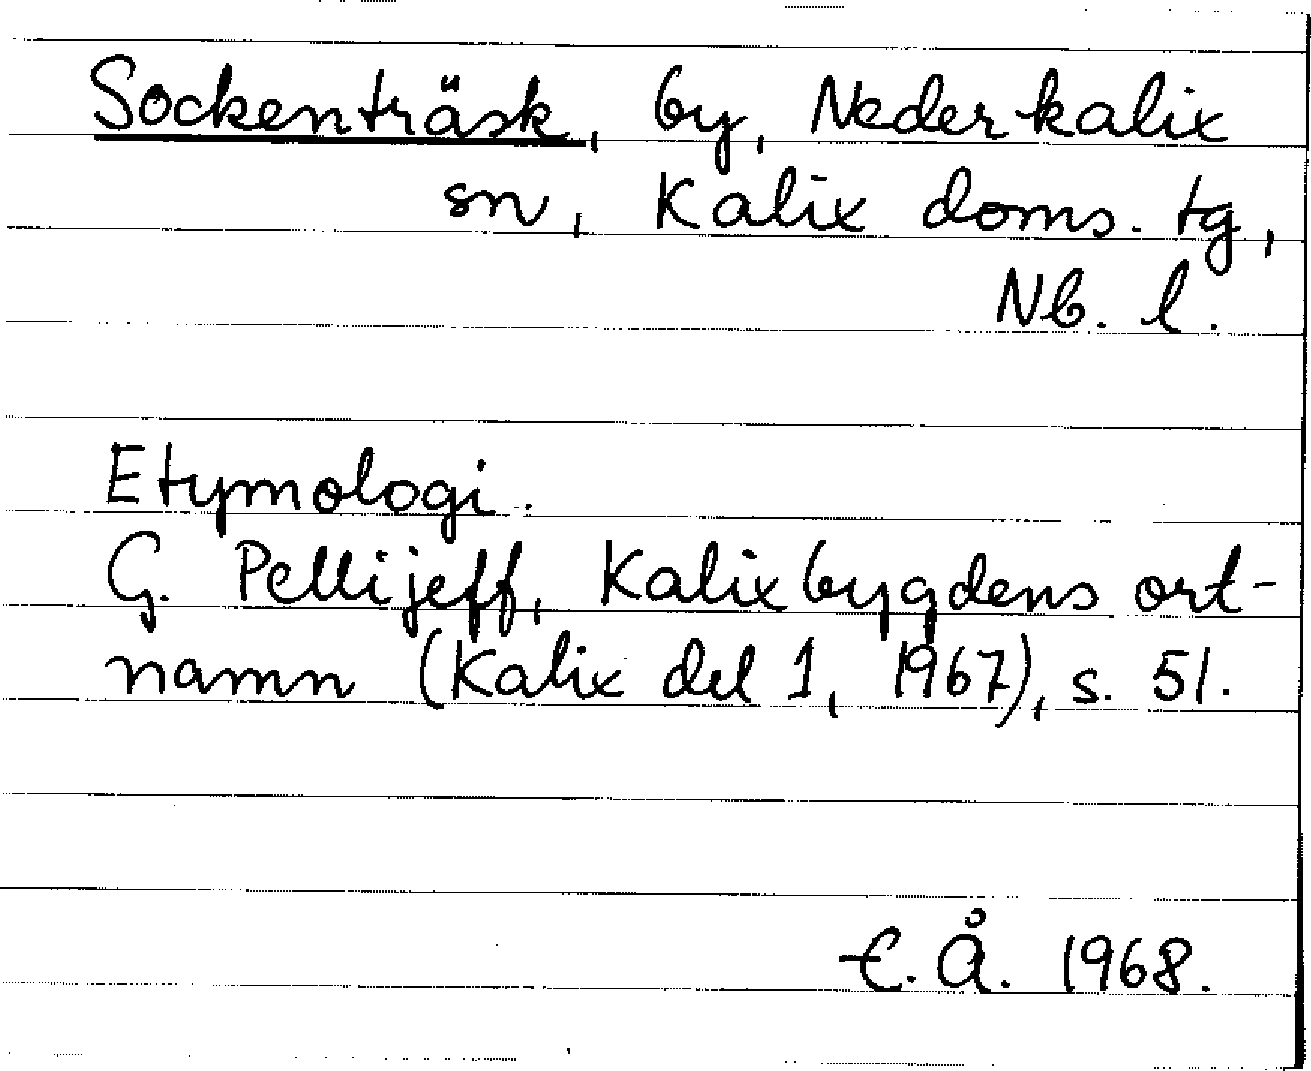 Sockenträsk, by, Nederkalix
sn, Kalix doms. tg,
Nb. l.
Etymologi.
G. Pellijeff, Kalixbygdens ort-
namn (Kalix del 1, 1967), s. 51.
E. Å. 1968.